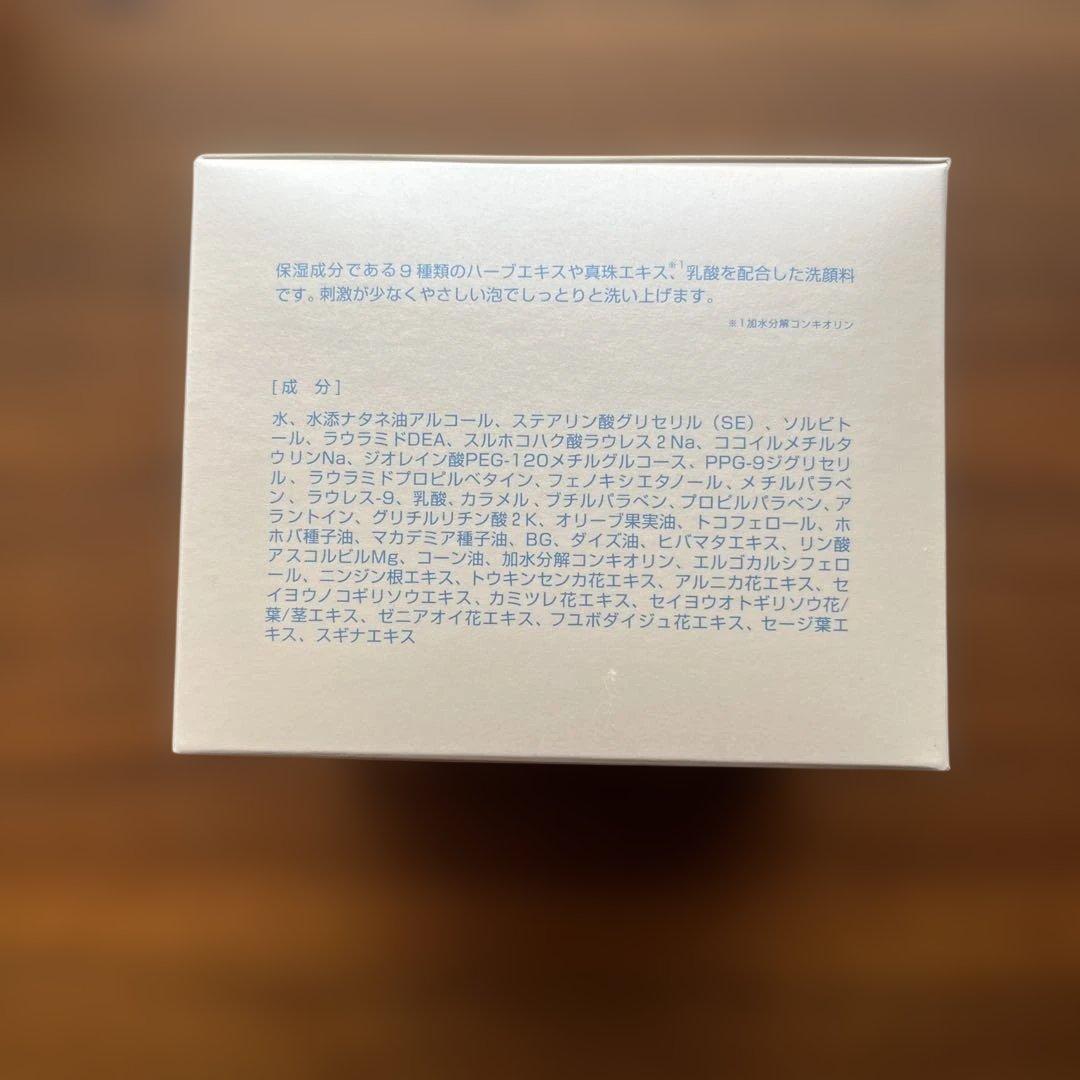 保湿成分である9種類のハーブエキスや真珠エキス※1、乳酸を配合した洗顔料
です。刺激が少なくやさしい泡でしっとりと洗い上げます。
※1加水分解コンキオリン
[成 分]
水、水添ナタネ油アルコール、ステアリン酸グリセリル(SE)、ソルビト
ール、ラウラミドDEA、スルホコハク酸ラウレス2Na、ココイルメチルタ
ウリンNa、ジオレイン酸PEG-120メチルグルコース、PPG-9ジグリセリ
ル、ラウラミドプロピルベタイン、フェノキシエタノール、メチルパラベ
ン、ラウレス-9、乳酸、カラメル、ブチルパラベン、プロピルパラベン、ア
ラントイン、グリチルリチン酸2K、オリーブ果実油、トコフェロール、ホ
ホバ種子油、マカデミア種子油、BG、ダイズ油、ヒバマタエキス、リン酸
アスコルビルMg、コーン油、加水分解コンキオリン、エルゴカルシフェロ
ール、ニンジン根エキス、トウキンセンカ花エキス、アルニカ花エキス、セ
イヨウノコギリソウエキス、カミツレ花エキス、セイヨウオトギリソウ花/
葉/茎エキス、ゼニアオイ花エキス、フユボダイジュ花エキス、セージ葉エ
キス、スギナエキス